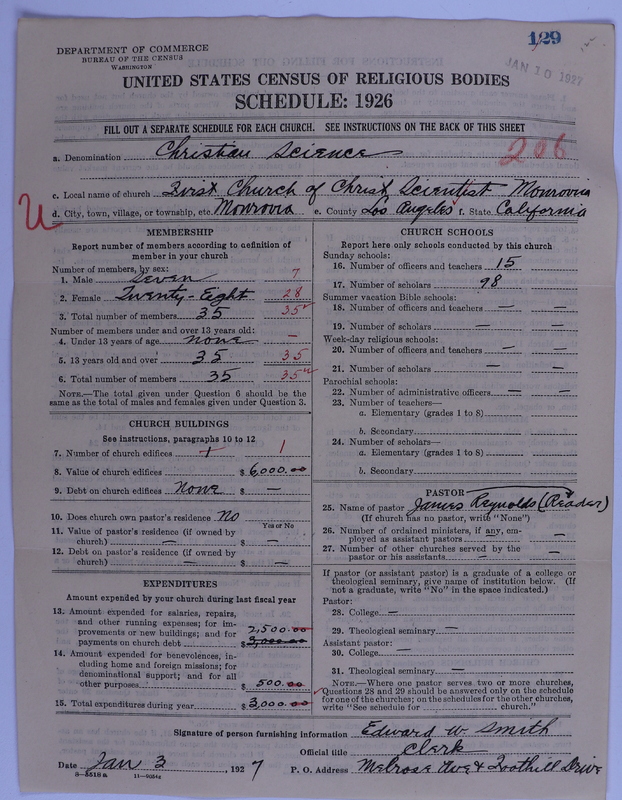 129
DEPARTMENT OF COMMERCE
BUREAU OF THE CENSUS
WASHINGTON
JAN 10 1927
UNITED STATES CENSUS OF RELIGIOUS BODIES
SCHEDULE: 1926
FILL OUT A SEPARATE SCHEDULE FOR EACH CHURCH. SEE INSTRUCTIONS ON THE BACK OF THIS SHEET
a. Denomination Christian Science
206
c. Local name of church First Church of Christ Scientist Monrovia
U
d. City, town, village, or township, etc. Monrovia e. County Los Angeles f. State California
MEMBERSHIP
Report number of members according to definition of
member in your church
Number of members, by sex:
1. Male Seven 7
2. Female Twenty-Eight 28
3. Total number of members 35 35
Number of members under and over 13 years old:
4. Under 13 years of age none —
5. 13 years old and over 35 35
6. Total number of members 35 35
NOTE.—The total given under Question 6 should be the
same as the total of males and females given under Question 3.
CHURCH BUILDINGS
See instructions, paragraphs 10 to 12
7. Number of church edifices 1 1
8. Value of church edifices $ 6,000.00
9. Debt on church edifices None $ —
10. Does church own pastor's residence No
Yes or No
11. Value of pastor's residence (if owned by
church) — $ —
12. Debt on pastor's residence (if owned by
church) — $ —
EXPENDITURES
Amount expended by your church during last fiscal year
13. Amount expended for salaries, repairs,
and other running expenses; for im-
provements or new buildings; and for 2,500.00
payments on church debt $ 3,000.00
14. Amount expended for benevolences, in-
cluding home and foreign missions; for
denominational support; and for all
other purposes $ 500.00
15. Total expenditures during year $ 3,000.00
CHURCH SCHOOLS
Report here only schools conducted by this church
Sunday schools:
16. Number of officers and teachers 15
17. Number of scholars 98
Summer vacation Bible schools:
18. Number of officers and teachers — —
19. Number of scholars — —
Week-day religious schools:
20. Number of officers and teachers — —
21. Number of scholars — —
Parochial schools:
22. Number of administrative officers — —
23. Number of teachers—
a. Elementary (grades 1 to 8)
b. Secondary
24. Number of scholars—
a. Elementary (grades 1 to 8)
b. Secondary
PASTOR
25. Name of pastor James Reynolds (Reader)
(If church has no pastor, write "None")
26. Number of ordained ministers, if any, em-
ployed as assistant pastors —
27. Number of other churches served by the
pastor or his assistants — —
If pastor (or assistant pastor) is a graduate of a college or
theological seminary, give name of institution below. (If
not a graduate, write "No" in the space indicated.)
Pastor:
28. College —
29. Theological seminary —
Assistant pastor:
30. College —
31. Theological seminary —
NOTE.—Where one pastor serves two or more churches,
Questions 28 and 29 should be answered only on the schedule
for one of the churches; on the schedules for the other churches,
write "See schedule for church."
Signature of person furnishing information Edward W. Smith
Official title Clerk
Date Jan 3, 1927 P. O. Address Melrose Ave & Foothill Drive
8—5518a 11—9054a